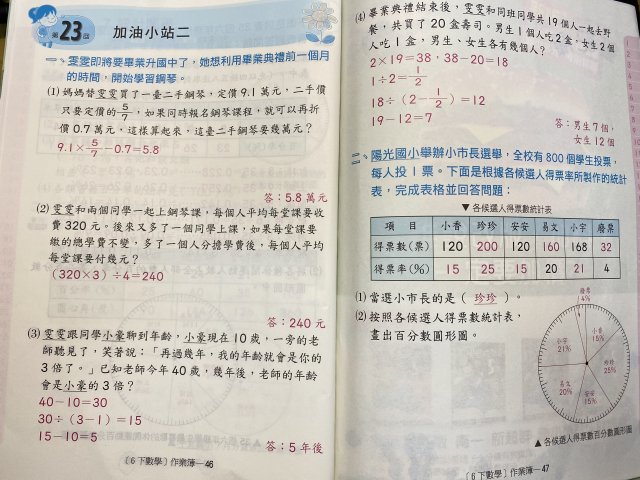 第23回 加油小站二
一、雯雯即將要畢業升國中了，她想利用畢業典禮前一個月
的時間，開始學習鋼琴。
(1) 媽媽替雯雯買了一臺二手鋼琴，定價9.1萬元，二手價
只要定價的5/7，如果同時報名鋼琴課程，就可以再折
價0.7萬元，這樣算起來，這臺二手鋼琴要幾萬元？
9.1×5/7－0.7＝5.8
答：5.8萬元
(2) 雯雯和兩個同學一起上鋼琴課，每個人平均每堂課要收
費320元。後來又多了一個同學上課，如果每堂課要
繳的總學費不變，多了一個人分擔學費後，每個人平均
每堂課要付幾元？
(320×3)÷4＝240
答：240元
(3) 雯雯跟同學小豪聊到年齡，小豪現在10歲，一旁的老
師聽見了，笑著說：「再過幾年，我的年齡就會是你的
3倍了。」已知老師今年40歲，幾年後，老師的年齡
會是小豪的3倍？
40－10＝30
30÷(3－1)＝15
15－10＝5
答：5年後
〔6下數學〕作業簿—46
(4) 畢業典禮結束後，雯雯和同班同學共19個人一起去野
餐，共買了20盒壽司。男生1個人吃2盒，女生2個
人吃1盒，男生、女生各有幾個人？
2×19＝38，38－20＝18
1÷2＝1/2
18÷(2－1/2)＝12
19－12＝7
答：男生7個，
女生12個
二、陽光國小舉辦小市長選舉，全校有800個學生投票，
每人投1票。下面是根據各候選人得票率所製作的統計
表，完成表格並回答問題：
▼各候選人得票數統計表
項目 小香 珍珍 安安 易文 小宇 廢票
得票數(票) 120 200 120 160 168 32
得票率(%) 15 25 15 20 21 4
(1) 當選小市長的是（ 珍珍 ）。
(2) 按照各候選人得票數統計表，
畫出百分數圓形圖。
廢票
4%
小香
15%
珍珍
25%
安安
15%
易文
20%
小宇
21%
▲各候選人得票數百分數圓形圖
〔6下數學〕作業簿—47